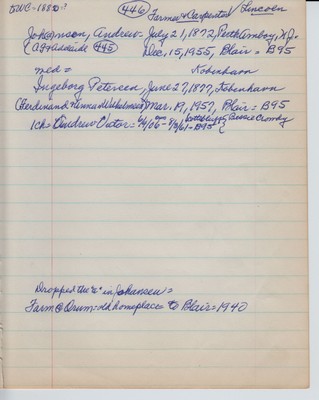 DWC-1880-?
446 Farmer & Carpenter √ Lincoln
Johansson, Andrew - July 21, 1872, Perth Amboy, N.J.-
(Agrasaide 445) Dec. 15, 1955, Blair = B95
med = Kobenhavn
Ingeborg Petersen, June 27, 1877, Kobenhavn
(Ferdinand Mar. 19, 1957, Blair = B95
1ch = Andrew Victor = 6/9/06 - 9/3/61 = B95 Bessie Crosby
Dropped the "e" in Johansen =
Farm @ Orum = old homeplace = to Blair = 1940